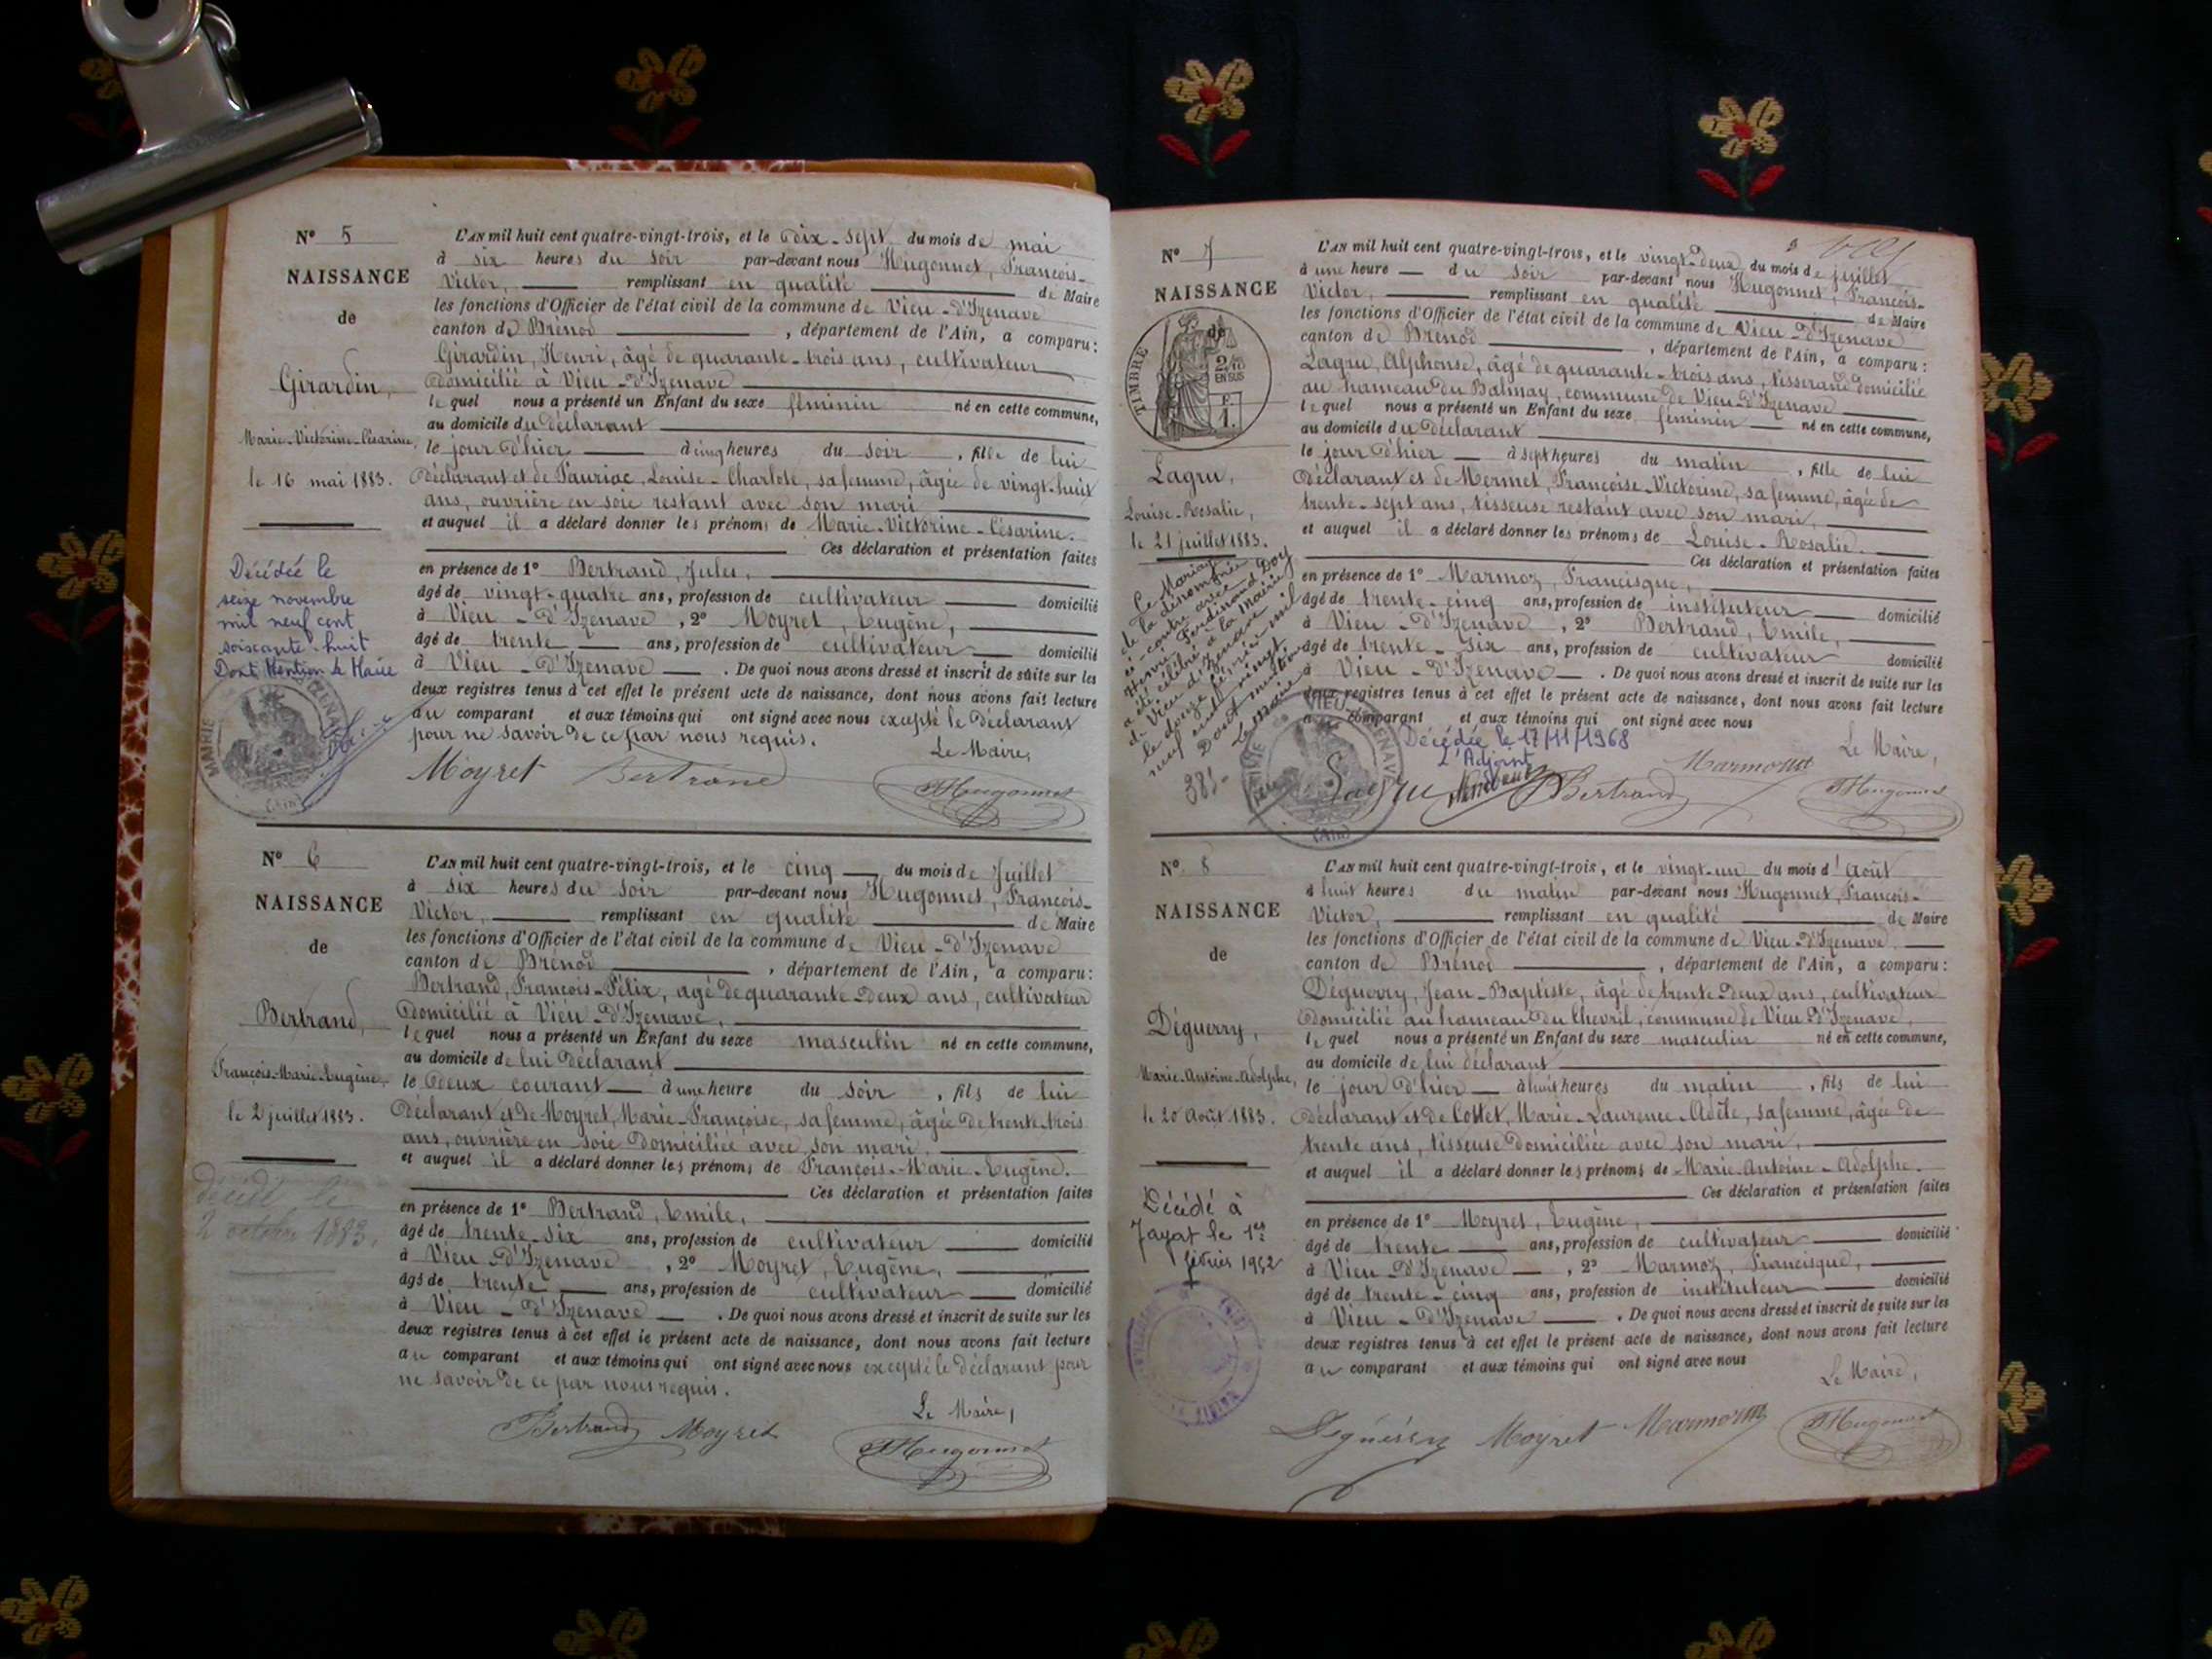 N° 5
NAISSANCE
de
Girardin,
Marie-Victorine-Césarine,
le 16 mai 1883.
Décédée le
seize novembre
mil neuf cent
soixante-huit
Dont Mention le Maire
L'AN mil huit cent quatre-vingt-trois, et le dix-sept du mois de mai
à six heures du soir par-devant nous Hugonnet, François-
Victor, remplissant en qualité de Maire
les fonctions d'Officier de l'état civil de la commune de Vieu-d'Izenave
canton de Brénod, département de l'Ain, a comparu:
Girardin, Henri, âgé de quarante-trois ans, cultivateur
domicilié à Vieu-d'Izenave
lequel nous a présenté un Enfant du sexe féminin né en cette commune,
au domicile du déclarant
le jour d'hier à cinq heures du soir, fille de lui
déclarant et de Pauriac, Louise-Charlote, sa femme, âgée de vingt-huit
ans, ouvrière en soie restant avec son mari
et auquel il a déclaré donner les prénoms de Marie-Victorine-Césarine.
Ces déclaration et présentation faites
en présence de 1° Bertrand, Jules,
âgé de vingt-quatre ans, profession de cultivateur domicilié
à Vieu-d'Izenave, 2° Moyret, Eugène,
âgé de trente ans, profession de cultivateur domicilié
à Vieu-d'Izenave. De quoi nous avons dressé et inscrit de suite sur les
deux registres tenus à cet effet le présent acte de naissance, dont nous avons fait lecture
au comparant et aux témoins qui ont signé avec nous excepté le déclarant
pour ne savoir de ce par nous requis.
Le Maire,
Moyret Bertrand Hugonnet
N° 6
NAISSANCE
de
Bertrand,
François-Marie-Eugène,
le 2 juillet 1883.
décédé le
2 octobre 1883.
L'AN mil huit cent quatre-vingt-trois, et le cinq du mois de Juillet
à six heures du soir par-devant nous Hugonnet, François-
Victor, remplissant en qualité de Maire
les fonctions d'Officier de l'état civil de la commune de Vieu-d'Izenave
canton de Brénod, département de l'Ain, a comparu:
Bertrand, François-Félix, âgé de quarante-deux ans, cultivateur
domicilié à Vieu-d'Izenave,
lequel nous a présenté un Enfant du sexe masculin né en cette commune,
au domicile de lui déclarant
le deux courant à une heure du soir, fils de lui
déclarant et de Moyret, Marie-Françoise, sa femme, âgée de trente-trois
ans, ouvrière en soie domiciliée avec son mari,
et auquel il a déclaré donner les prénoms de François-Marie-Eugène.
Ces déclaration et présentation faites
en présence de 1° Bertrand, Emile,
âgé de trente-six ans, profession de cultivateur domicilié
à Vieu-d'Izenave, 2° Moyret, Eugène,
âgé de trente ans, profession de cultivateur domicilié
à Vieu-d'Izenave. De quoi nous avons dressé et inscrit de suite sur les
deux registres tenus à cet effet le présent acte de naissance, dont nous avons fait lecture
au comparant et aux témoins qui ont signé avec nous excepté le déclarant pour
ne savoir de ce par nous requis.
Le Maire,
Bertrand Moyret Hugonnet
N° 7
NAISSANCE
de
TIMBRE
2/10
EN SUS
Lagru,
Louise-Rosalie,
le 21 juillet 1883.
Le Mariage
de la dénommée
ci-contre avec
Henri Ferdinand Doy
a été célébré à la mairie
de Vieu d'Izenave
le douze février mil
neuf cent vingt
Dont mention
Le maire
L'AN mil huit cent quatre-vingt-trois, et le vingt-deux du mois de juillet
à une heure du soir par-devant nous Hugonnet, François-
Victor, remplissant en qualité de Maire
les fonctions d'Officier de l'état civil de la commune de Vieu-d'Izenave
canton de Brénod, département de l'Ain, a comparu:
Lagru, Alphonse, âgé de quarante-trois ans, tisserand domicilié
au hameau du Balmay, commune de Vieu-d'Izenave
lequel nous a présenté un Enfant du sexe féminin né en cette commune,
au domicile du déclarant
le jour d'hier à sept heures du matin, fille de lui
déclarant et de Mermet, Françoise-Victorine, sa femme, âgée de
trente-sept ans, tisseuse restant avec son mari,
et auquel il a déclaré donner les prénoms de Louise-Rosalie.
Ces déclaration et présentation faites
en présence de 1° Marmoz, Francisque,
âgé de trente-cinq ans, profession de instituteur domicilié
à Vieu-d'Izenave, 2° Bertrand, Emile,
âgé de trente-six ans, profession de cultivateur domicilié
à Vieu-d'Izenave. De quoi nous avons dressé et inscrit de suite sur les
deux registres tenus à cet effet le présent acte de naissance, dont nous avons fait lecture
au comparant et aux témoins qui ont signé avec nous
Décédée le 17/11/1968
L'Adjoint
Le Maire,
Lagru Bertrand Marmoz Hugonnet
N° 8
NAISSANCE
de
Déguerry,
Marie-Antoine-Adolphe,
le 20 Août 1883.
Décédé à
Jayat le 1er
février 1952
L'AN mil huit cent quatre-vingt-trois, et le vingt-un du mois d'Août
à huit heures du matin par-devant nous Hugonnet, François-
Victor, remplissant en qualité de Maire
les fonctions d'Officier de l'état civil de la commune de Vieu-d'Izenave,
canton de Brénod, département de l'Ain, a comparu:
Déguerry, Jean-Baptiste, âgé de trente-deux ans, cultivateur
domicilié au hameau du Chevril, commune de Vieu-d'Izenave,
lequel nous a présenté un Enfant du sexe masculin né en cette commune,
au domicile de lui déclarant
le jour d'hier à huit heures du matin, fils de lui
déclarant et de Cottet, Marie-Laurence-Adèle, sa femme, âgée de
trente ans, tisseuse domiciliée avec son mari,
et auquel il a déclaré donner les prénoms de Marie-Antoine-Adolphe.
Ces déclaration et présentation faites
en présence de 1° Moyret, Eugène,
âgé de trente ans, profession de cultivateur domicilié
à Vieu-d'Izenave, 2° Marmoz, Francisque,
âgé de trente-cinq ans, profession de instituteur domicilié
à Vieu-d'Izenave. De quoi nous avons dressé et inscrit de suite sur les
deux registres tenus à cet effet le présent acte de naissance, dont nous avons fait lecture
au comparant et aux témoins qui ont signé avec nous
Le Maire,
Déguerry Moyret Marmoz Hugonnet